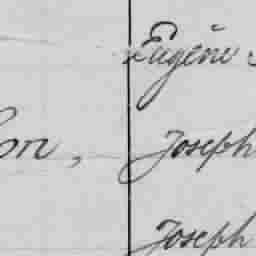 Eugène
on, Joseph
Joseph